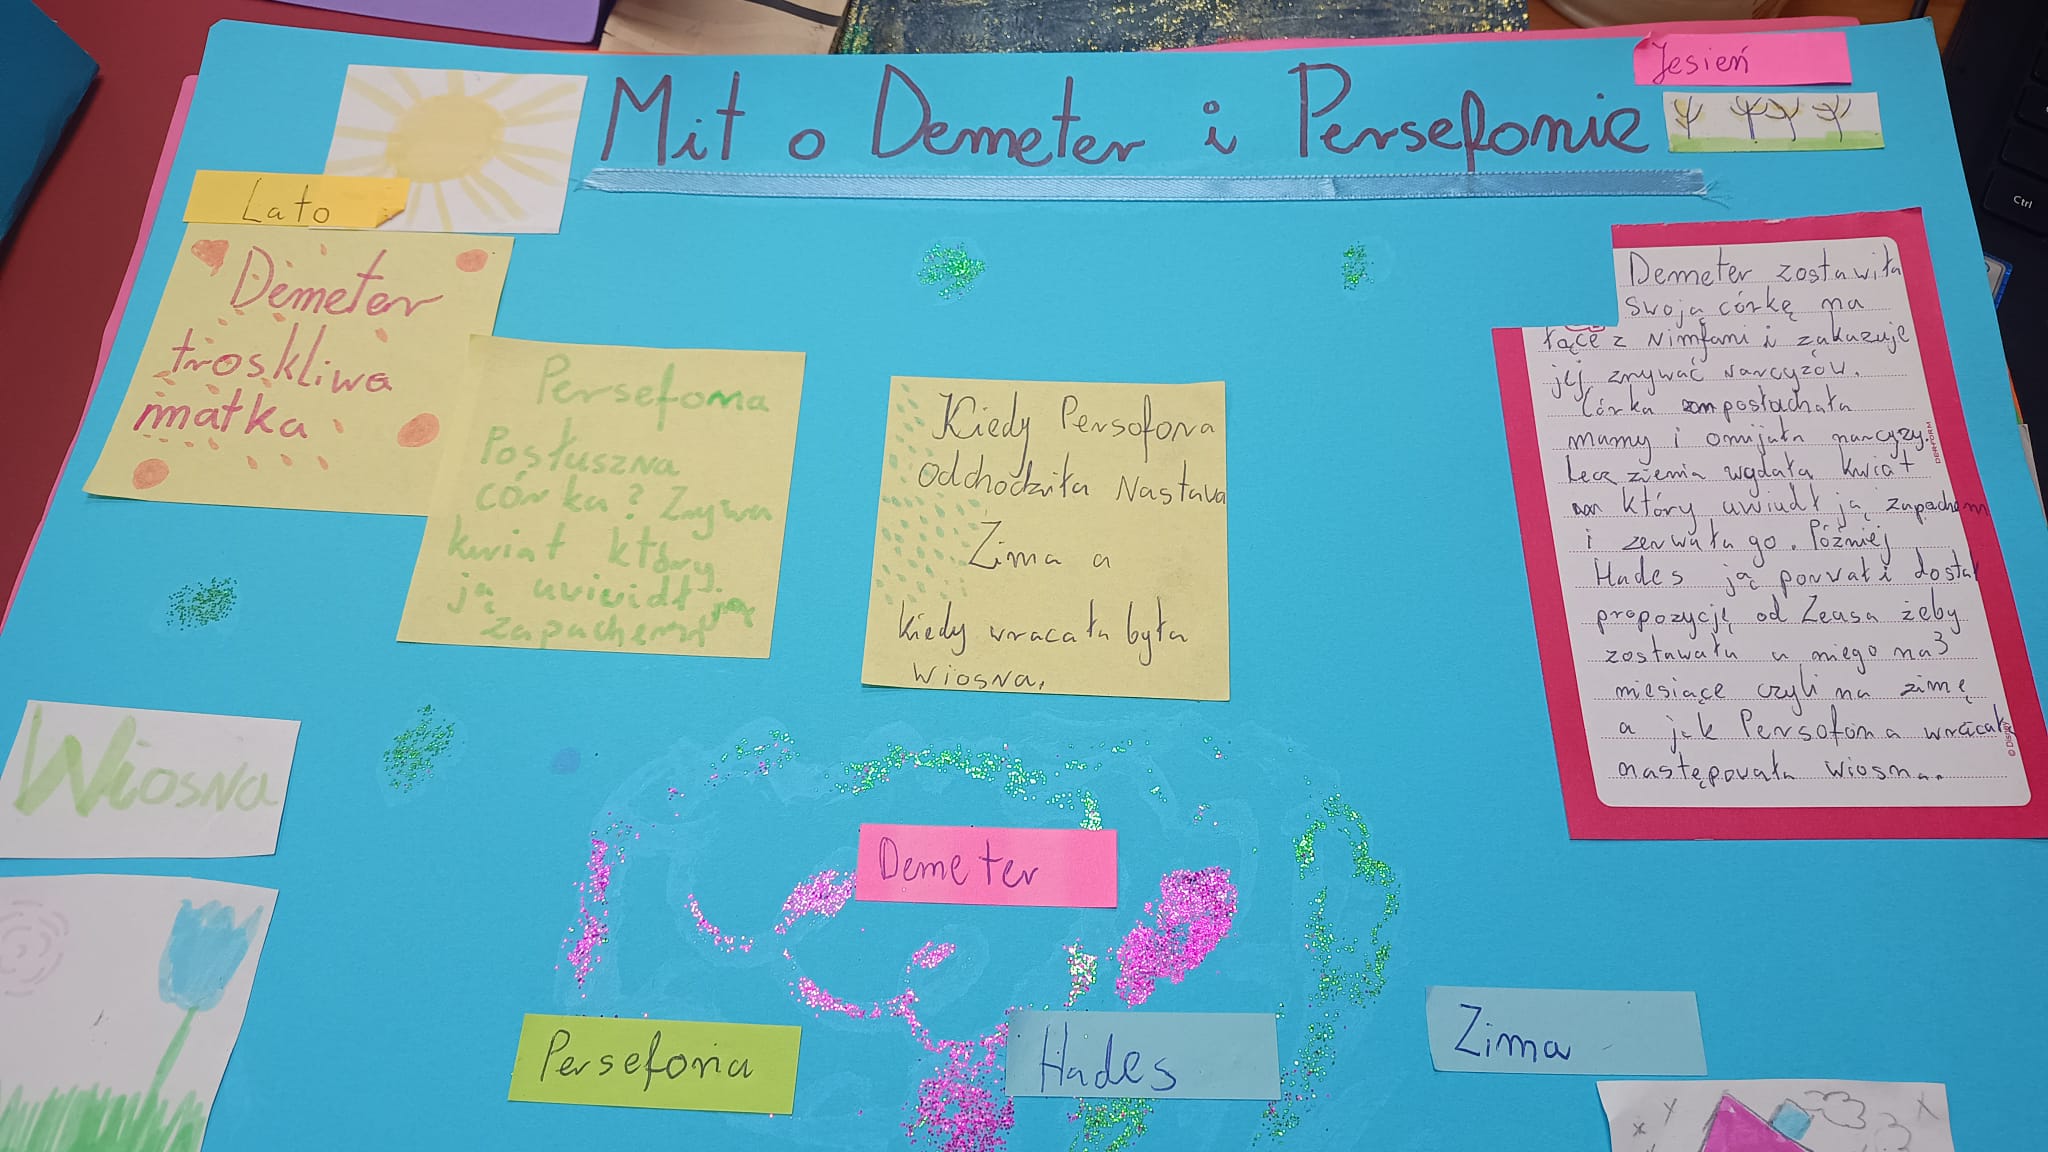 Mit o Demeter i Persefonie
Jesień
Lato
Demeter
troskliwa
matka
Persefona
Posłuszna
córka? Zrywa
kwiat który
ją uwiudł
zapachem
Kiedy Persofona
odchodziła Nastava
Zima a
kiedy wracała była
wiosna.
Demeter zostawiła
swoją córkę na
łące z Nimfami i zakazuje
jej zrywać narcyzów.
Córka posłuchała
mamy i omijała narcyzy.
lecz ziemia wydała kwiat
który uwiudł ją zapachem
i zerwała go. Później
Hades ją porwał i dostał
propozycję od Zeusa żeby
zostawała u niego na 3
miesiące czyli na zimę
a jak Persofona wracała
następowała wiosna.
DERFORM
© Disney
Wiosna
Demeter
Persefona
Hades
Zima
Ctrl